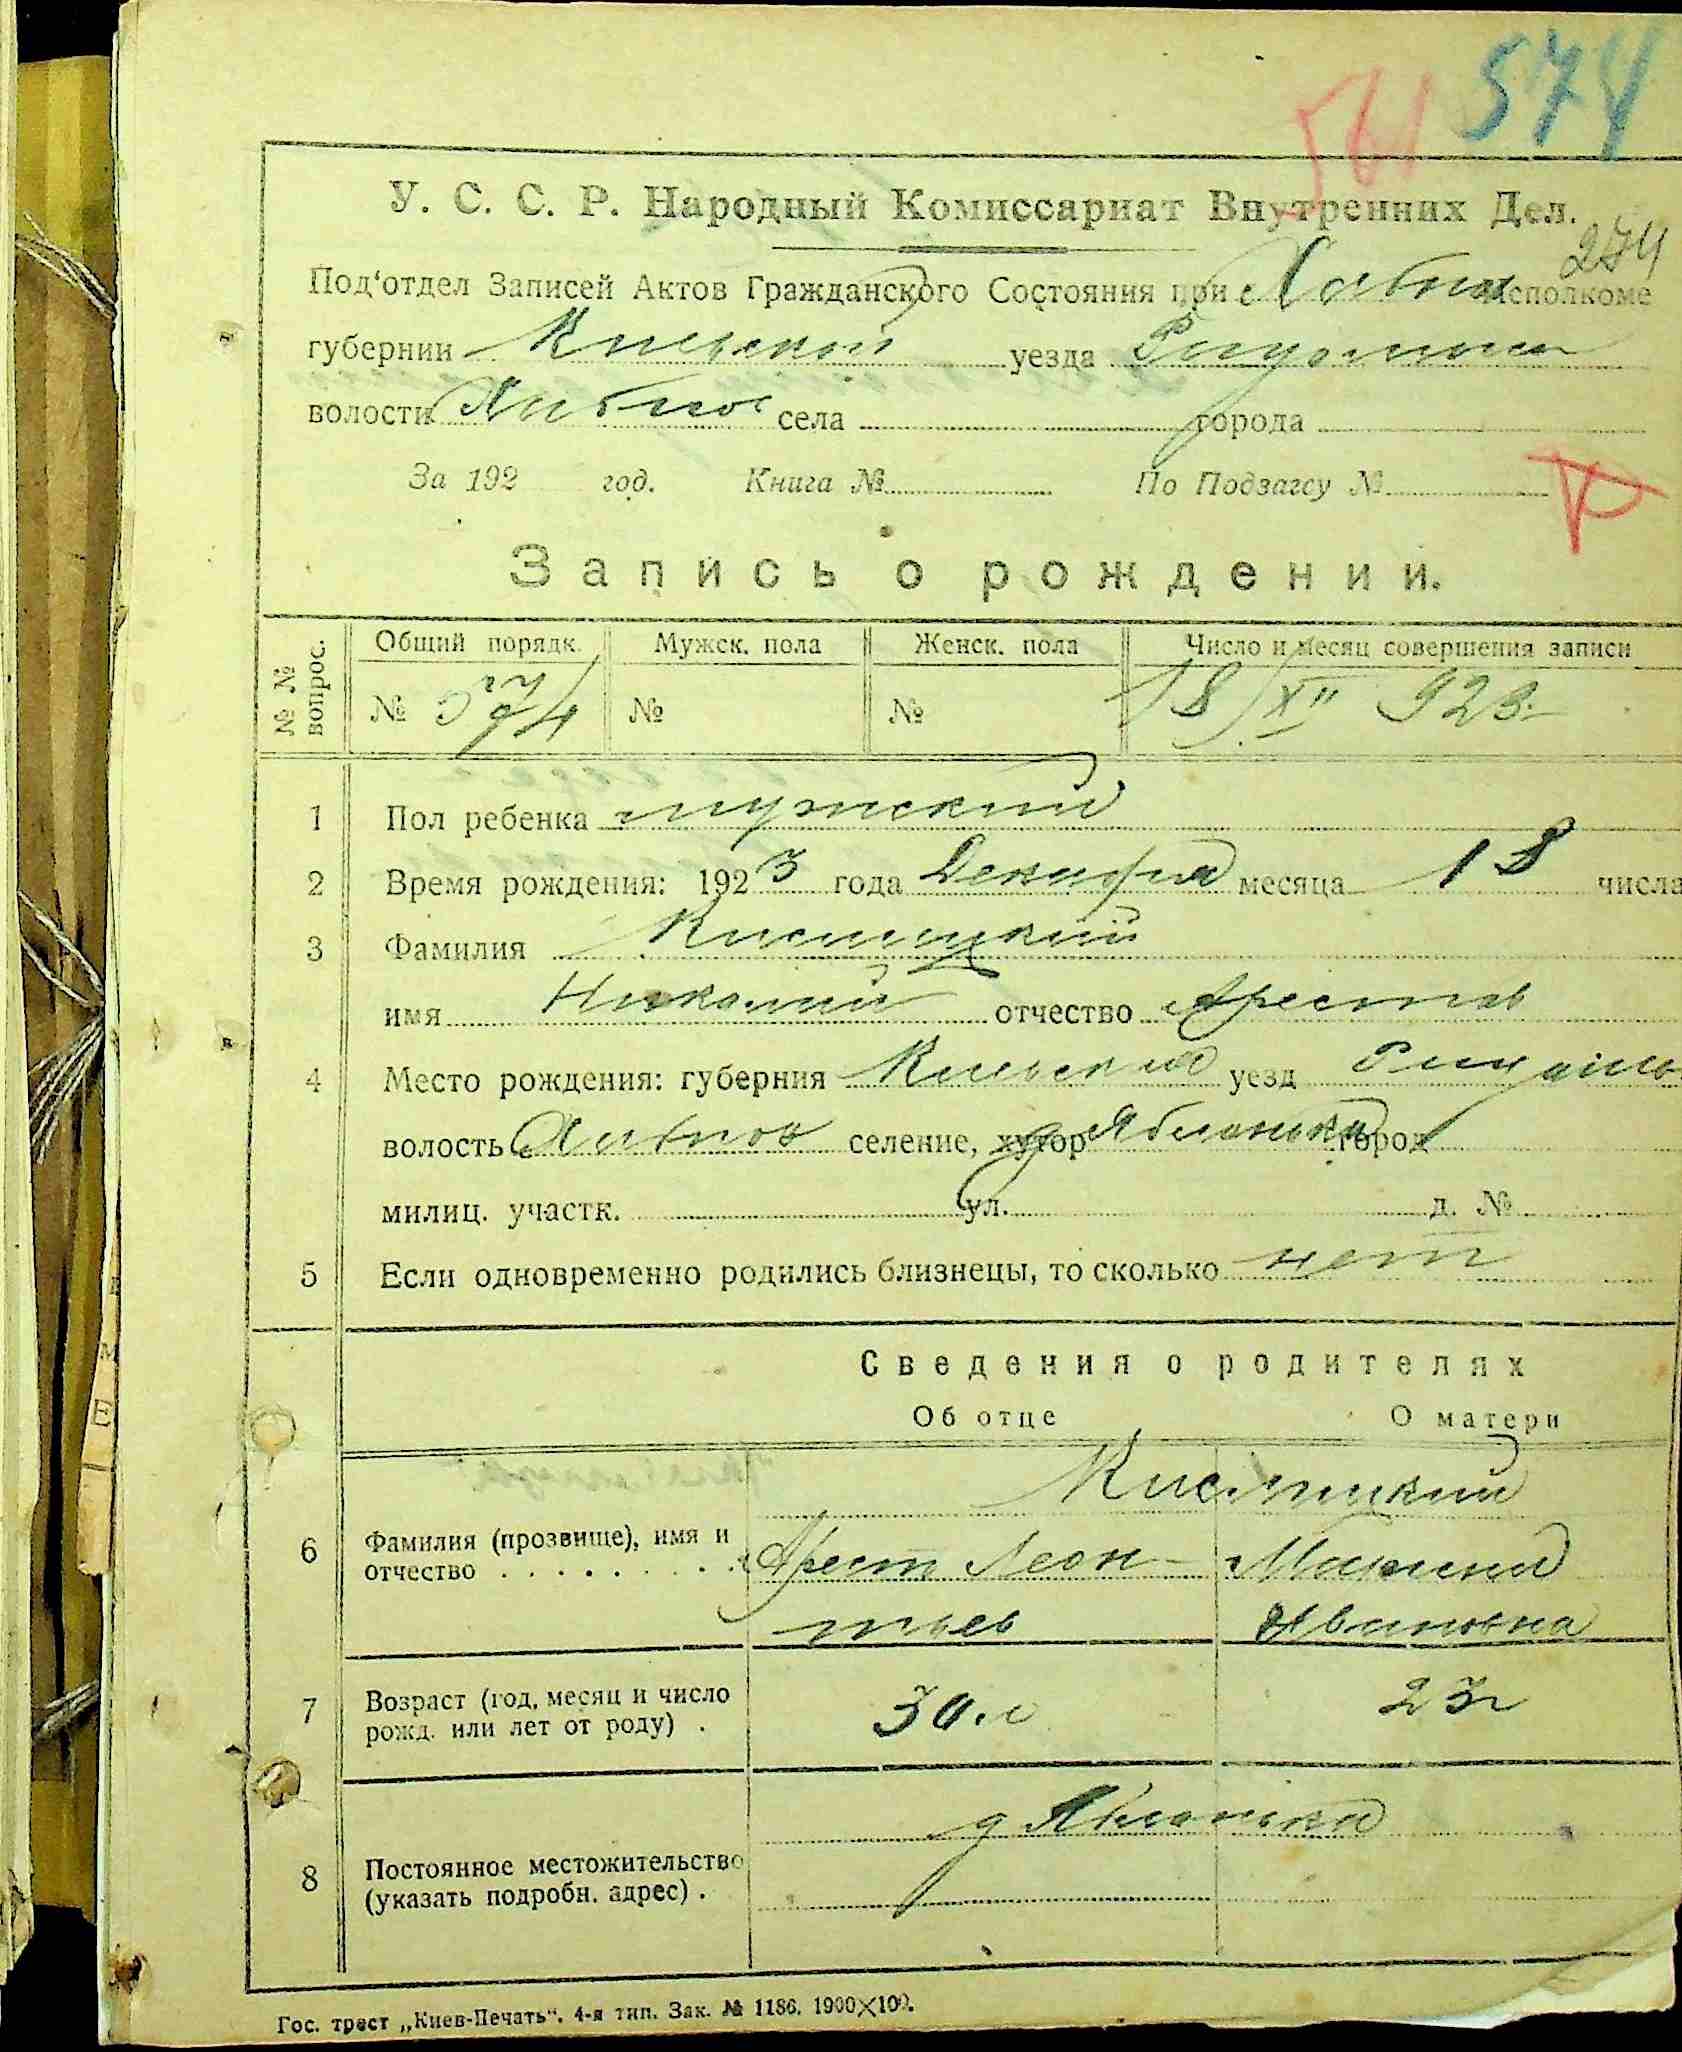 574
561
У. С. С. Р. Народный Комиссариат Внутренних Дел.
274
Под'отдел Записей Актов Гражданского Состояния при Хабн исполкоме
губернии Киевской уезда Радомысл
волости Хабное села города
За 192 год. Книга № По Подзагсу №
Запись о рождении.
№№ вопрос. Общий порядк. Мужск. пола Женск. пола Число и месяц совершения записи
№ № № 18/XII 923.
1 Пол ребенка мужский
2 Время рождения: 1923 года Декабря месяца 18 числа
3 Фамилия Кислицкий
имя Николай отчество Арестов
4 Место рождения: губерния Киевская уезд Радомы
волость Хабное селение, хутор д Яблонька город
милиц. участк. ул. д. №
5 Если одновременно родились близнецы, то сколько нет
Сведения о родителях
Об отце О матери
Кислицкий
6 Фамилия (прозвище), имя и
отчество . . . . . . . . . Арест Леон- Мария
тьев Ивановна
7 Возраст (год, месяц и число
рожд. или лет от роду) . 30 л 23 г
д Яблонька
8 Постоянное местожительство
(указать подробн. адрес) .
Гос. трест „Киев-Печать“. 4-я тип. Зак. № 1186. 1900×100.